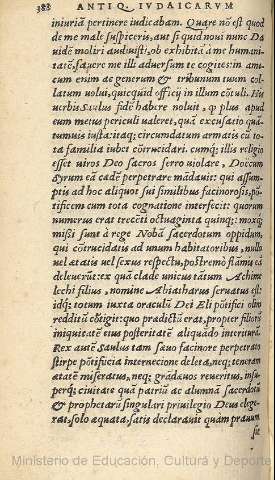 388 ANTIQ. IVDAICARVM
iniuriã pertinere iudicabam. Quare nõ est quod
de me male suspiceris, aut si quid noui nunc Da
uidẽ moliri audiuisti, ob exhibitã à me humani
tatẽ, fauere me illi aduersum te cogites: im ami-
cum enim ac generum & tribunum tuum col-
latum uolui, quicquid officij in illum cõtuli. His
uerbis Saulus fidẽ habere noluit, plus apud
eum metus periculi ualeret, quã excusatio quã-
tumuis iusta: itaq; circumdatum armatis cũ to-
ta familia iubet cõtrucidari. cumq; illis religio
esset uiros Deo sacros ferro uiolare, Doccum
Syrum eã cædẽ perpetrare mãdauit: qui assum-
ptis ad hoc aliquot sui similibus facinorosis, põ-
tificem cum tota cognatione interfecit: quorum
numerus erat trecẽti octuaginta quinq;: moxq;
missi sunt à rege Nobã sacerdotum oppidum,
qui cõtrucidatis ad unum habitatoribus, nullo
uel ætatis uel sexus respectu, postremo flãmis eã
deleuerũt: ex qua clade unicus tãtum Achime
lechi filius, nomine Abiatharus seruatus est:
idq; totum iuxta oraculũ Dei Eli põtifici olim
redditũ cõtigit: quo prædictũ erat, propter filiorũ
iniquitatẽ eius posteritatẽ aliquãdo interiturã.
Rex autẽ Saulus tam sæuo facinore perpetrato
stirpe põtificia internecione deleta, neq; teneram
ætatẽ miseratus, neq; grãdæuos reueritus, insu-
perq; ciuitate quã patriã ac alumnã sacerdotũ
& prophetarũ singulari priuilegio Deus elege-
rat, solo æquata, satis declarauit quàm prauum
sit
Ministerio de Educación, Cultura y Deporte